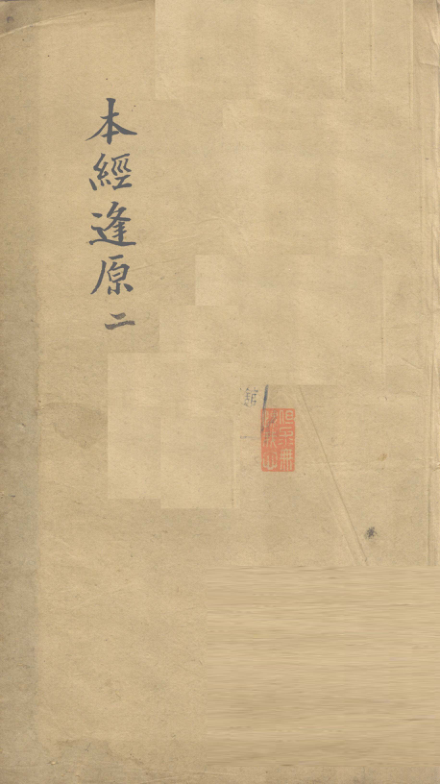 本經逢原二